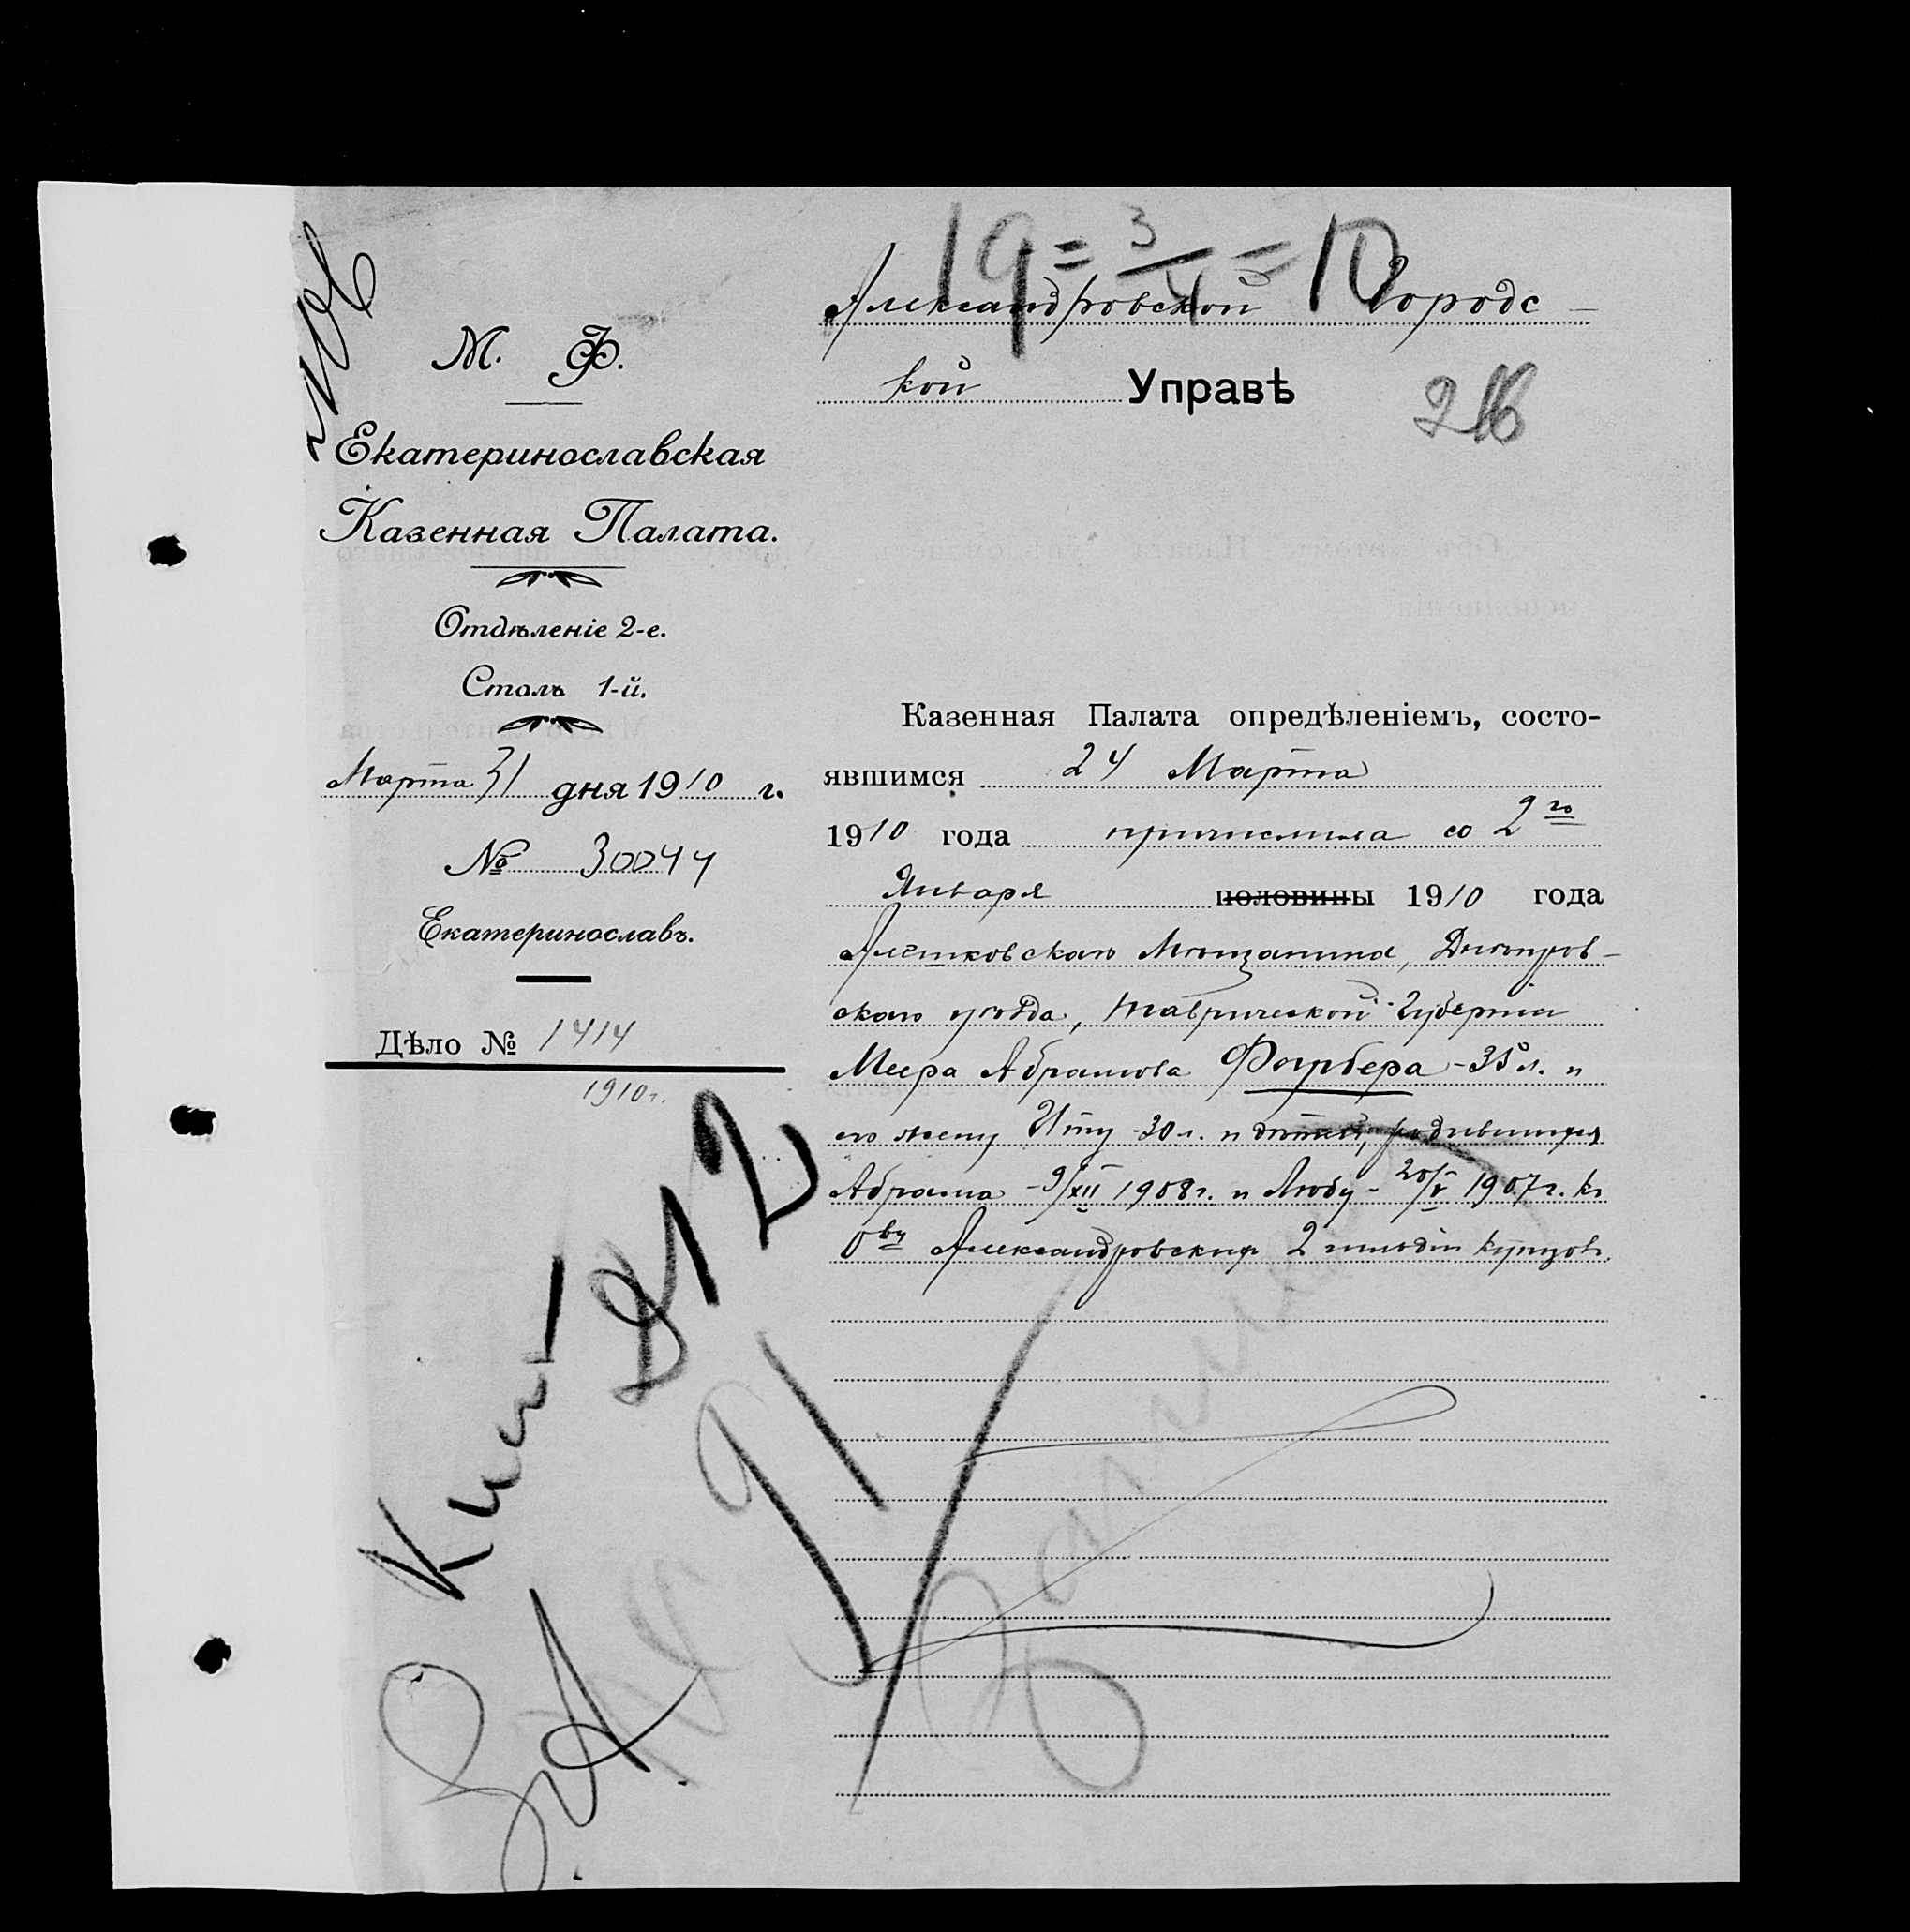 19 = 3/4 = 10
Александровской Городс-
кой Управѣ
216
М. Ф.
Екатеринославская
Казенная Палата.
Отдѣленіе 2-е.
Столъ 1-й.
Марта 31 дня 1910 г.
№ 30044
Екатеринославъ.
Дѣло № 1414
1910 г.
Казенная Палата опредѣленіемъ, состо-
явшимся 24 Марта
1910 года причислила со 2го
Января половины 1910 года
Алешковскаго Мѣщанина, Днѣпров-
скаго уѣзда, Таврической Губерніи
Меера Абрамова Фарбера - 35 л. и
его жену Иту - 30 л. и дѣтей, родившихся
Абрама - 9/XII 1908 г. и Любу - 20/V 1907 г. къ
Ову Александровскихъ 2 гильдіи купцовъ.
Кни
212
91